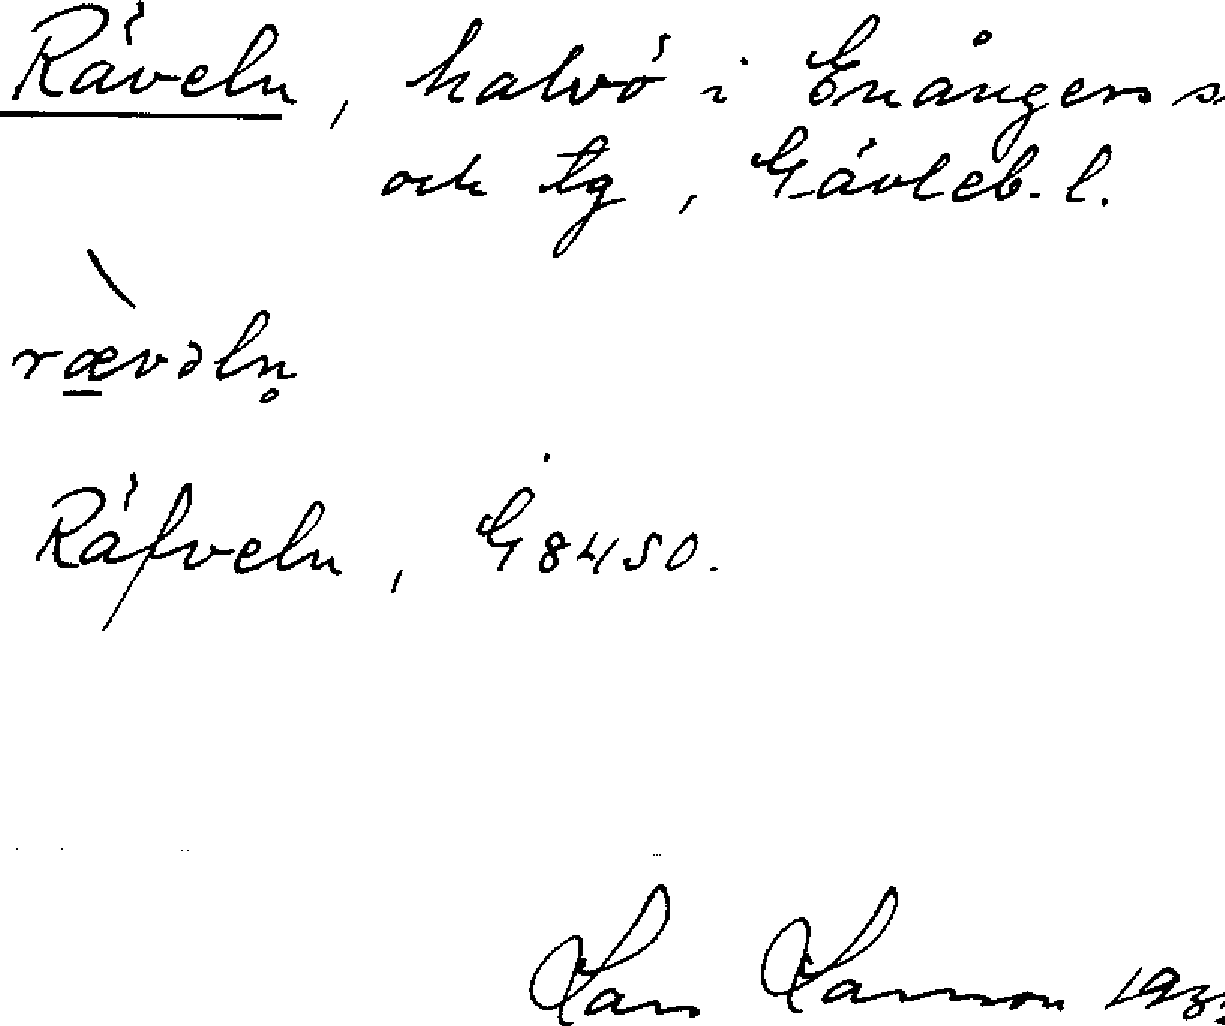 Räveln, halvö i Enångers s
och tg, Gävleb. l.
rævəln̥
Räfveln, G 8450.
Lars Larsson 193